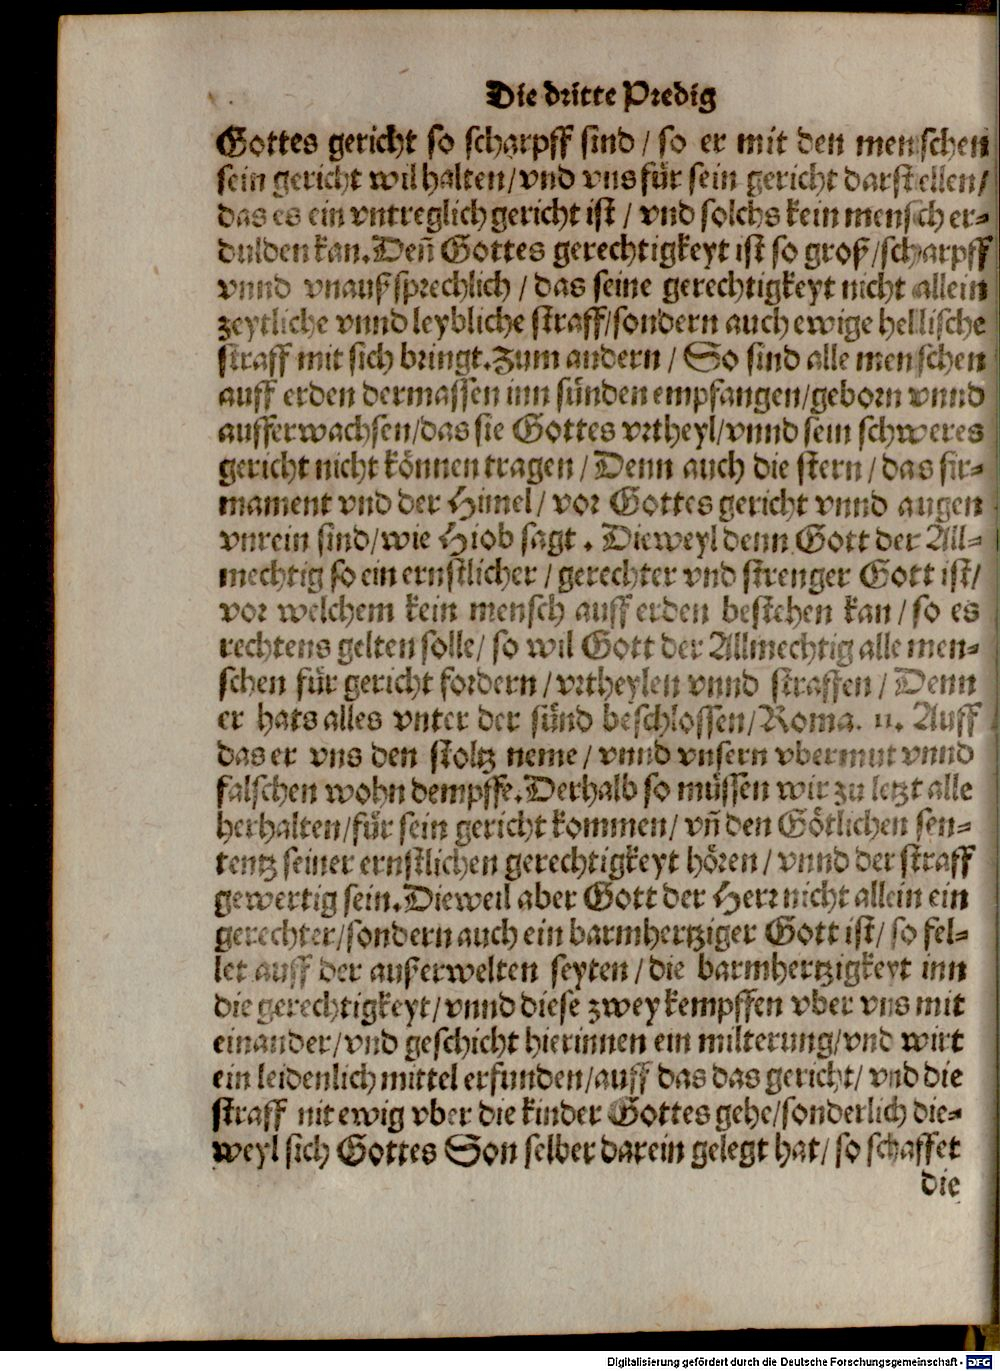 Die dritte Predig
Gottes gericht so scharpff sind / so er mit den menschen
sein gericht wil halten / vnd vns für sein gericht darstellen /
das es ein vntreglich gericht ist / vnd solchs kein mensch er-
dulden kan. Deñ Gottes gerechtigkeyt ist so groß / scharpff
vnnd vnaußsprechlich / das seine gerechtigkeyt nicht allein
zeytliche vnnd leybliche straff / sondern auch ewige hellische
straff mit sich bringt. Zum andern / So sind alle menschen
auff erden dermassen inn sünden empfangen / geborn vnnd
aufferwachsen / das sie Gottes vrtheyl / vnnd sein schweres
gericht nicht können tragen / Denn auch die stern / das fir-
mament vnd der Himel / vor Gottes gericht vnnd augen
vnrein sind / wie Hiob sagt . Dieweyl denn Gott der All-
mechtig so ein ernstlicher / gerechter vnd strenger Gott ist /
vor welchem kein mensch auff erden bestehen kan / so es
rechtens gelten solle / so wil Gott der Allmechtig alle men-
schen für gericht fordern / vrtheylen vnnd straffen / Denn
er hats alles vnter der sünd beschlossen / Roma. 11. Auff
das er vns den stoltz neme / vnnd vnsern vbermut vnnd
falschen wohn dempffe. Derhalb so müssen wir zu letzt alle
herhalten / für sein gericht kommen / vñ den Götlichen sen-
tentz seiner ernstlichen gerechtigkeyt hören / vnnd der straff
gewertig sein. Dieweil aber Gott der Herr nicht allein ein
gerechter / sondern auch ein barmhertziger Gott ist / so fel-
let auff der außerwelten seyten / die barmhertzigkeyt inn
die gerechtigkeyt / vnnd diese zwey kempffen vber vns mit
einander / vnd geschicht hierinnen ein milterung / vnd wirt
ein leidenlich mittel erfunden / auff das das gericht / vnd die
straff nit ewig vber die kinder Gottes gehe / sonderlich die-
weyl sich Gottes Son selber darein gelegt hat / so schaffet
die
Digitalisierung gefördert durch die Deutsche Forschungsgemeinschaft - DFG